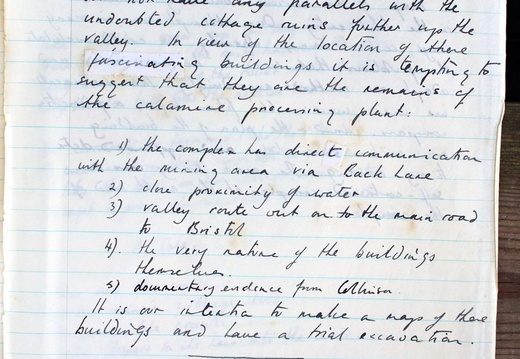 not have any parallels with the
undoubted cottage ruins further up the
valley. In view of the location of these
fascinating buildings it is tempting to
suggest that they are the remains of
the calamine processing plant:
1) the complex has direct communication
with the mining area via Back Lane
2) close proximity of water
3) valley route out on to the main road
to Bristol
4). the very nature of the buildings
themselves.
5) documentary evidence from Collinson.
It is our intention to make a map of these
buildings and have a trial excavation.